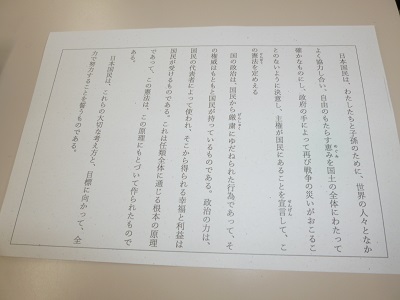 日本国民は、わたしたちと子孫のために、世界の人々となか
よく協力し合い、自由のもたらす恵みを国土の全体にわたって
確かなものにし、政府の手によって再び戦争の災いがおこるこ
とのないように決意し、主権が国民にあることを宣言して、こ
の憲法を定める
国の政治は、国民から厳粛にゆだねられた行為であって、そ
の権威はもともと国民が持っているものである。政治の力は、
国民の代表者によって使われ、そこから得られる幸福と利益は
国民が受けるものである。これは任類全体に通じる根本の原理
であって、この憲法は、この原理にもとづいて作られたもので
ある。
日本国民は、これらの大切な考え方と、目標に向かって、全
力で努力することを誓うものである。